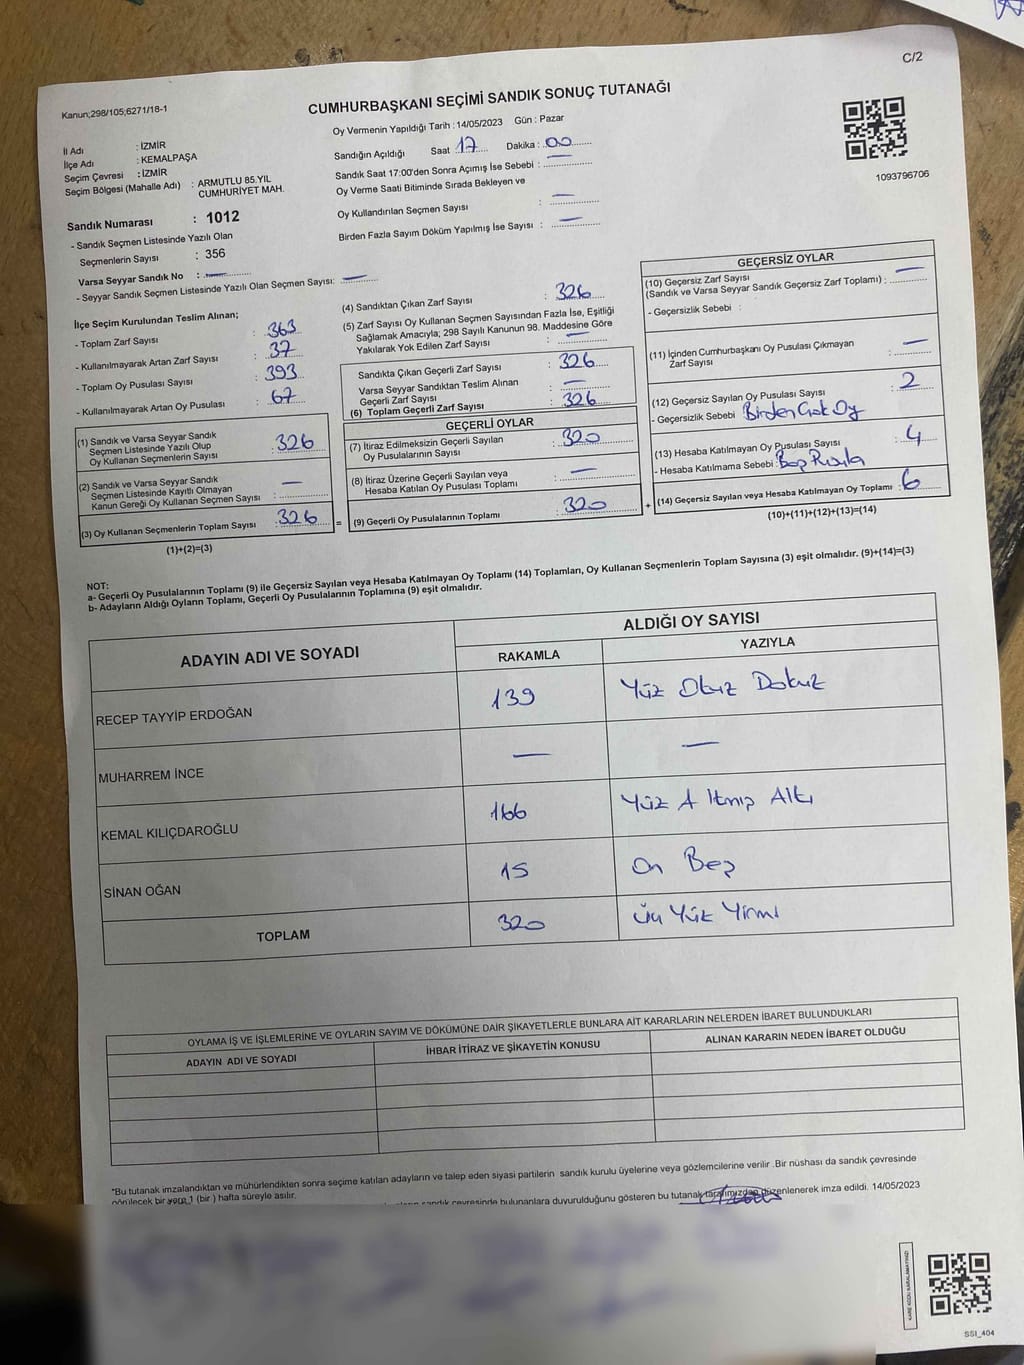 C/2
Kanun;298/105;6271/18-1
CUMHURBAŞKANI SEÇİMİ SANDIK SONUÇ TUTANAĞI
Oy Vermenin Yapıldığı Tarih : 14/05/2023 Gün : Pazar
Sandığın Açıldığı Saat 17 Dakika : 00
Sandık Saat 17:00'den Sonra Açımış İse Sebebi : —
Oy Verme Saati Bitiminde Sırada Bekleyen ve
Oy Kullandırılan Seçmen Sayısı : —
Birden Fazla Sayım Döküm Yapılmış İse Sayısı : —
1093796706
İl Adı : İZMİR
İlçe Adı : KEMALPAŞA
Seçim Çevresi : İZMİR
Seçim Bölgesi (Mahalle Adı) : ARMUTLU 85.YIL
CUMHURİYET MAH.
Sandık Numarası : 1012
- Sandık Seçmen Listesinde Yazılı Olan
Seçmenlerin Sayısı : 356
Varsa Seyyar Sandık No : —
- Seyyar Sandık Seçmen Listesinde Yazılı Olan Seçmen Sayısı: —
İlçe Seçim Kurulundan Teslim Alınan;
- Toplam Zarf Sayısı : 363
- Kullanılmayarak Artan Zarf Sayısı : 37
- Toplam Oy Pusulası Sayısı : 393
- Kullanılmayarak Artan Oy Pusulası : 67
(1) Sandık ve Varsa Seyyar Sandık
Seçmen Listesinde Yazılı Olup
Oy Kullanan Seçmenlerin Sayısı : 326
(2) Sandık ve Varsa Seyyar Sandık
Seçmen Listesinde Kayıtlı Olmayan
Kanun Gereği Oy Kullanan Seçmen Sayısı : —
(3) Oy Kullanan Seçmenlerin Toplam Sayısı : 326 =
(1)+(2)=(3)
(4) Sandıktan Çıkan Zarf Sayısı : 326
(5) Zarf Sayısı Oy Kullanan Seçmen Sayısından Fazla İse, Eşitliği
Sağlamak Amacıyla; 298 Sayılı Kanunun 98. Maddesine Göre
Yakılarak Yok Edilen Zarf Sayısı : —
Sandıkta Çıkan Geçerli Zarf Sayısı : 326
Varsa Seyyar Sandıktan Teslim Alınan
Geçerli Zarf Sayısı : —
(6) Toplam Geçerli Zarf Sayısı : 326
GEÇERLİ OYLAR
(7) İtiraz Edilmeksizin Geçerli Sayılan
Oy Pusulalarının Sayısı : 320
(8) İtiraz Üzerine Geçerli Sayılan veya
Hesaba Katılan Oy Pusulası Toplamı : —
(9) Geçerli Oy Pusulalarının Toplamı : 320 +
GEÇERSİZ OYLAR
(10) Geçersiz Zarf Sayısı
(Sandık ve Varsa Seyyar Sandık Geçersiz Zarf Toplamı) : —
- Geçersizlik Sebebi :
(11) İçinden Cumhurbaşkanı Oy Pusulası Çıkmayan
Zarf Sayısı : —
(12) Geçersiz Sayılan Oy Pusulası Sayısı : 2
- Geçersizlik Sebebi Birden Çok Oy
(13) Hesaba Katılmayan Oy Pusulası Sayısı : 4
- Hesaba Katılmama Sebebi : Boş Pusula
(14) Geçersiz Sayılan veya Hesaba Katılmayan Oy Toplamı : 6
(10)+(11)+(12)+(13)=(14)
NOT:
a- Geçerli Oy Pusulalarının Toplamı (9) ile Geçersiz Sayılan veya Hesaba Katılmayan Oy Toplamı (14) Toplamları, Oy Kullanan Seçmenlerin Toplam Sayısına (3) eşit olmalıdır. (9)+(14)=(3)
b- Adayların Aldığı Oyların Toplamı, Geçerli Oy Pusulalarının Toplamına (9) eşit olmalıdır.
ADAYIN ADI VE SOYADI
ALDIĞI OY SAYISI
RAKAMLA YAZIYLA
RECEP TAYYİP ERDOĞAN 139 Yüz Otuz Dokuz
MUHARREM İNCE — —
KEMAL KILIÇDAROĞLU 166 Yüz Altmış Altı
SİNAN OĞAN 15 On Beş
TOPLAM 320 Üç Yüz Yirmi
OYLAMA İŞ VE İŞLEMLERİNE VE OYLARIN SAYIM VE DÖKÜMÜNE DAİR ŞİKAYETLERLE BUNLARA AİT KARARLARIN NELERDEN İBARET BULUNDUKLARI
ADAYIN ADI VE SOYADI İHBAR İTİRAZ VE ŞİKAYETİN KONUSU ALINAN KARARIN NEDEN İBARET OLDUĞU
*Bu tutanak imzalandıktan ve mühürlendikten sonra seçime katılan adayların ve talep eden siyasi partilerin sandık kurulu üyelerine veya gözlemcilerine verilir .Bir nüshası da sandık çevresinde
görülecek bir yere 1 (bir ) hafta süreyle asılır.
sandık çevresinde bulunanlara duyurulduğunu gösteren bu tutanak tarafımızdan düzenlenerek imza edildi. 14/05/2023
KARE KODU KARALAMAYINIZ!
SSI_404